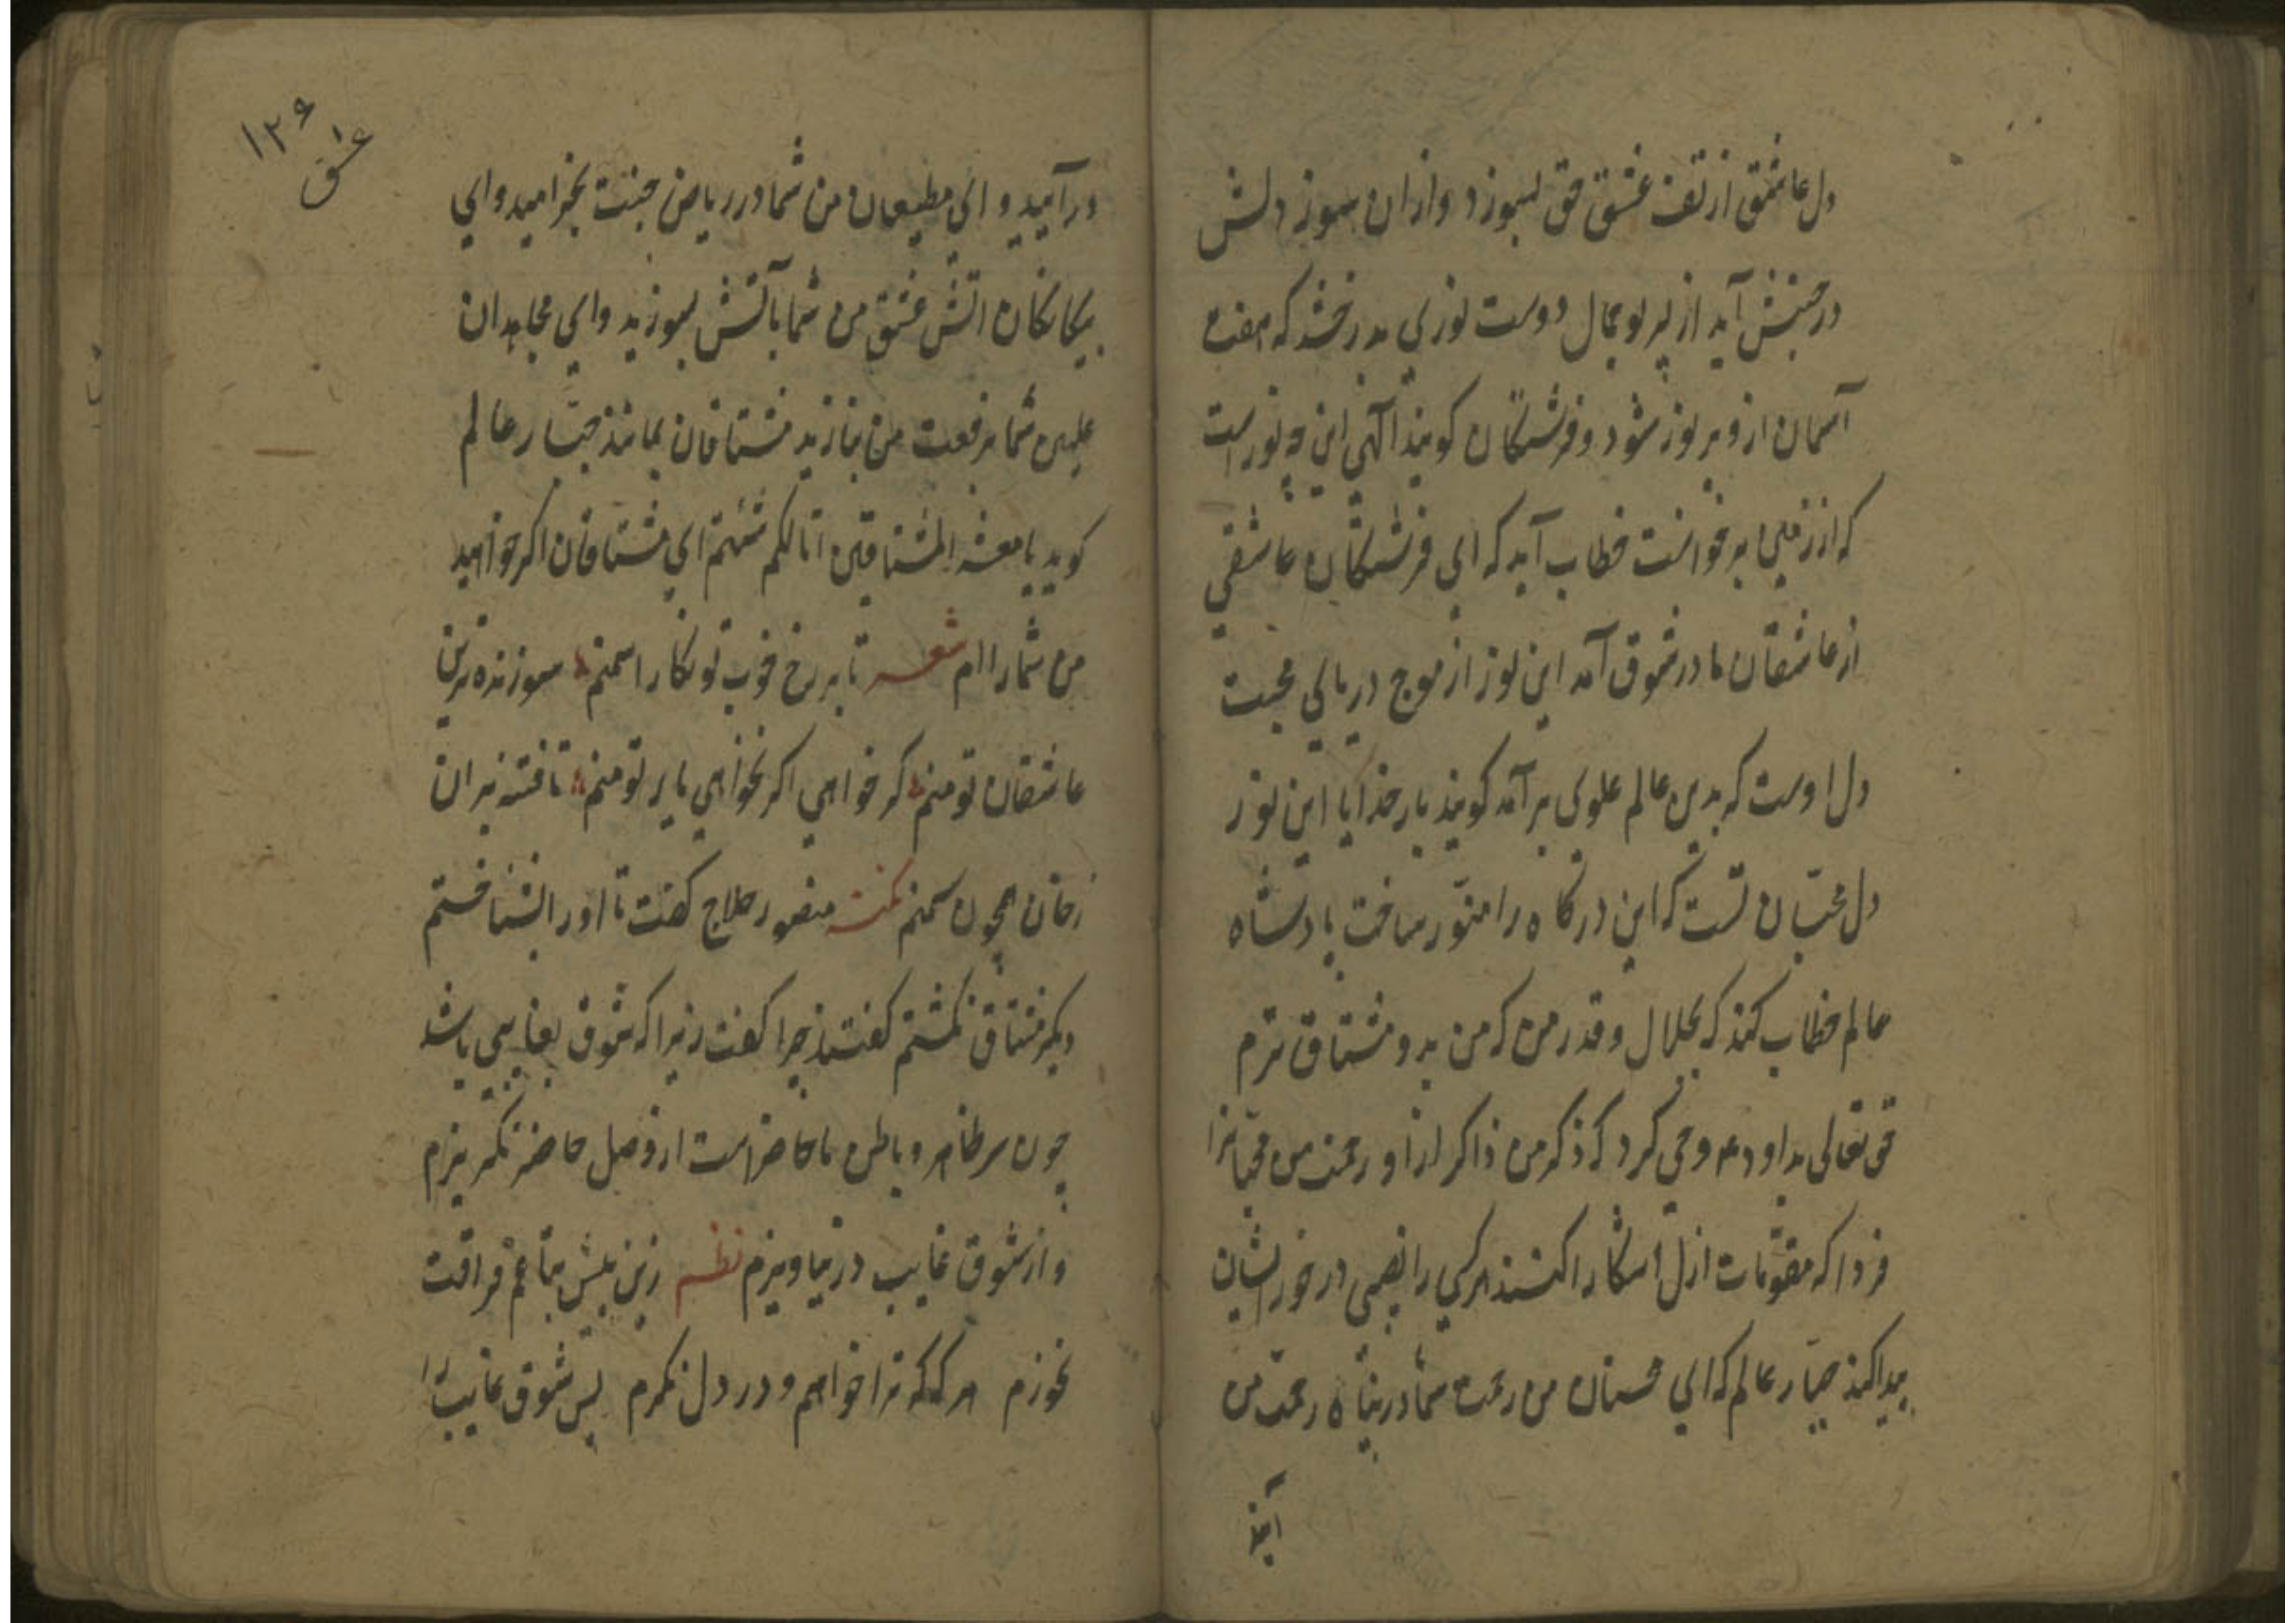 دل عاشق از تف عشق حق بسوزد و ازان سوز دلش
در جنبش آید از پرتو جمال دوست نوری بدرخشد که هفت
آسمان ازو پر نور شود و فرشتگان کویند الهی این چه نور است
که از زمین برخواست خطاب آید که ای فرشتگان عاشقی
از عاشقان ما در شوق آمد این نور از موج دریای محبت
دل اوست که بدین عالم علوی برآمد کویند بار خدایا این نور
دل محبان تست که این درکاه را منور ساخت پادشاه
عالم خطاب کند که بجلال و قدر من که من بدو مشتاق ترم
حق تعالی بداود ع وحی کرد که ذکر من ذاکرانرا و رحمت من محبانرا
فردا که مقومات ازل اشکارا کنند هر کسی را نصیبی در خور ایشان
پیدا کند جبار عالم که ای محسنان من رحمت شما در پناه رحمت من
آیند
۱۲۶
عشق
در آیید و ای مطیعان من شما در ریاض جنت بخرامید و ای
بیکانکان اتش عشق من شما بآتش بسوزید و ای مجاهدان
علیین شما برفعت من بنازید مشتاقان بمانند جبار عالم
کوید یا معشر المشتاقین انا لکم شئتم ای مشتاقان اکر خواهید
من شما را ام شعر تا بر رخ خوب تو نکارا سمنم سوزنده ترین
عاشقان تو منم کر خواهی اکر نخواهی یار تو منم تافته بران
رخان همچون سمنم نکته منصور حلاج کفت تا او را بشناختم
دیکر مشتاق نکشتم کفتند چرا کفت زیرا که شوق بغایبی باشد
چون سر ظاهر و باطن ما حاضر است از وصل حاضر نکریزم
و از شوق غایب در نیاویزم نظم زین بیش بتا غم فراقت
نخورم هر که که ترا خواهم و در دل نکرم پس شوق غایب را